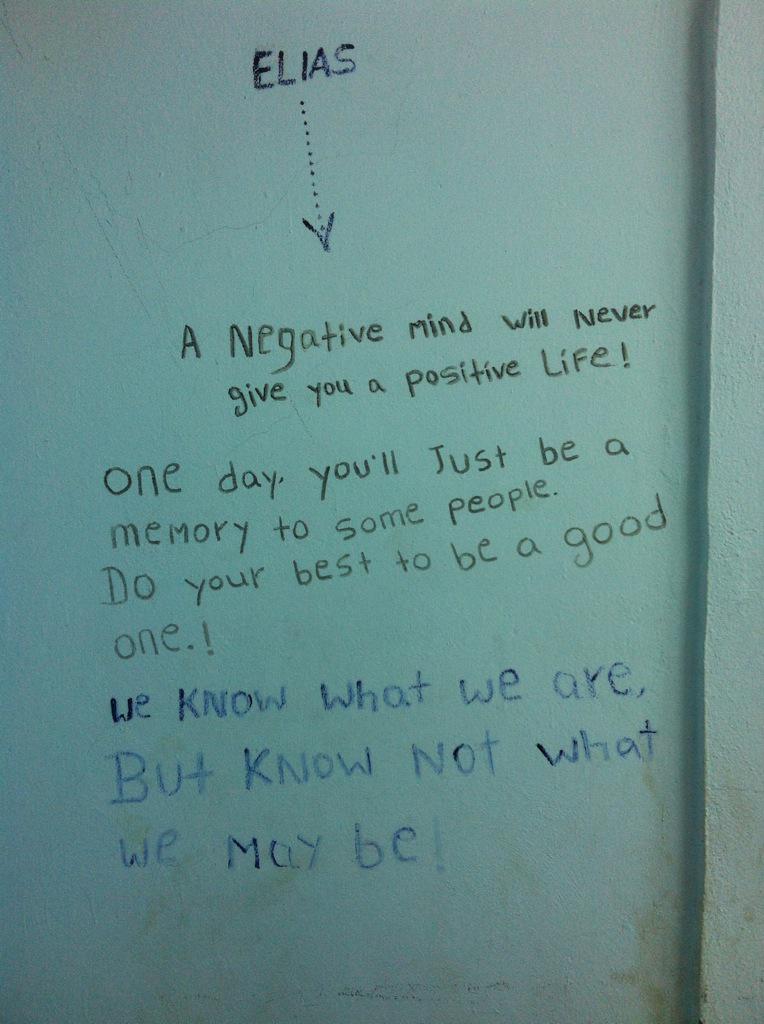 ELIAS
A Negative mind will Never
give you a positive Life!
one day, you'll Just be a
memory to some people.
Do your best to be a good
one.!
we know what we are,
But know not what
we may be!